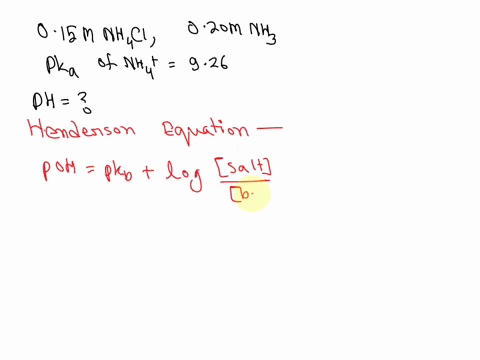 0.15M NH₄Cl, 0.20M NH₃
Pka of NH₄⁺ = 9.26
PH = ?
Henderson Equation —
pOH = pkb + log [salt] / [b.